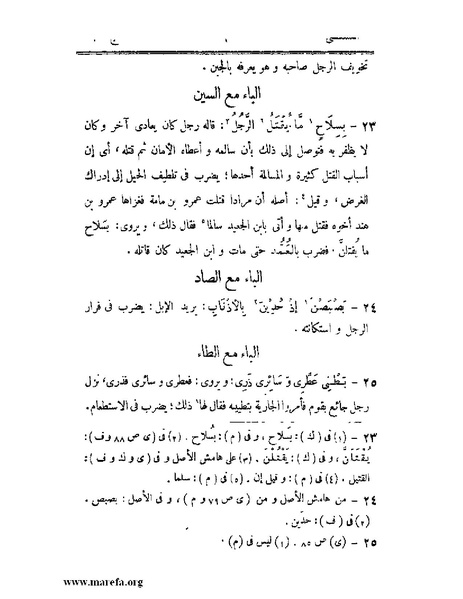 المستقصى ١ ج - ١
تخويف الرجل صاحبه و هو يعرفه بالجبن .
الباء مع السين
٢٣ - بِسِلَاحٍ ١ مَّا يُقْتَلُ ٢ الرَّجُلُ ٣: قاله رجل كان يعادى آخر وكان
لا يظفر به فتوصل إلى ذلك بأن سالمه و أعطاه الأمان ثم قتله ، أى إن
أسباب القتل كثيرة و المسالمة أحدها ؛ يضرب فى تلطيف الحيل إلى إدراك
الغرض ، و قيل ٤: أصله أن مرادا قتلت عمرو بن مامة فغزاها عمرو بن
هند أخوه فقتل منها و أتى بابن الجعيد سالما ٥ فقال ذلك ، و يروى: بسلاح
ما يُقتلنَّ . فضرب بالعُمُد حتى مات و ابن الجعيد كان قاتله .
الباء مع الصاد
٢٤ - بَصْبَصْنَ ١ إِذْ حُدِيْنَ ٢ بِالأَذْنَابِ: يريد الإبل: يضرب فى فرار
الرجل و استكانته .
الباء مع الطاء
٢٥ - بَطْنِى عَطِّرِى وَ سَائِرِى ذَرِى: و يروى: فعطرى و سائرى فذرى، نزل
رجل جائع بقوم فأمروا الجارية بتطييبه فقال لها ١ ذلك ؛ يضرب فى الاستطعام.
٢٣ - (١) فى ( ك ): بَسلاح ، و فى ( م ): بُسلاح . (٢) فى ( ى ص ٨٨ و ف ):
يُقْتَلنَّ ، و فى ( ك ): يَقْتُلنْ . (٣) على هامش الأصل و فى ( ى و ك و ف ):
القتيل . (٤) فى ( م ): و قيل إن . (٥) فى ( م ): سلما .
٢٤ - من هامش الأصل و من ( ى ص ٧٩ و م ) ، و فى الأصل: بصبص .
(٢) فى ( ف ): حدّين .
٢٥ - (ى) ص ٨٥ . (١) ليس فى (م) .
www.marefa.org